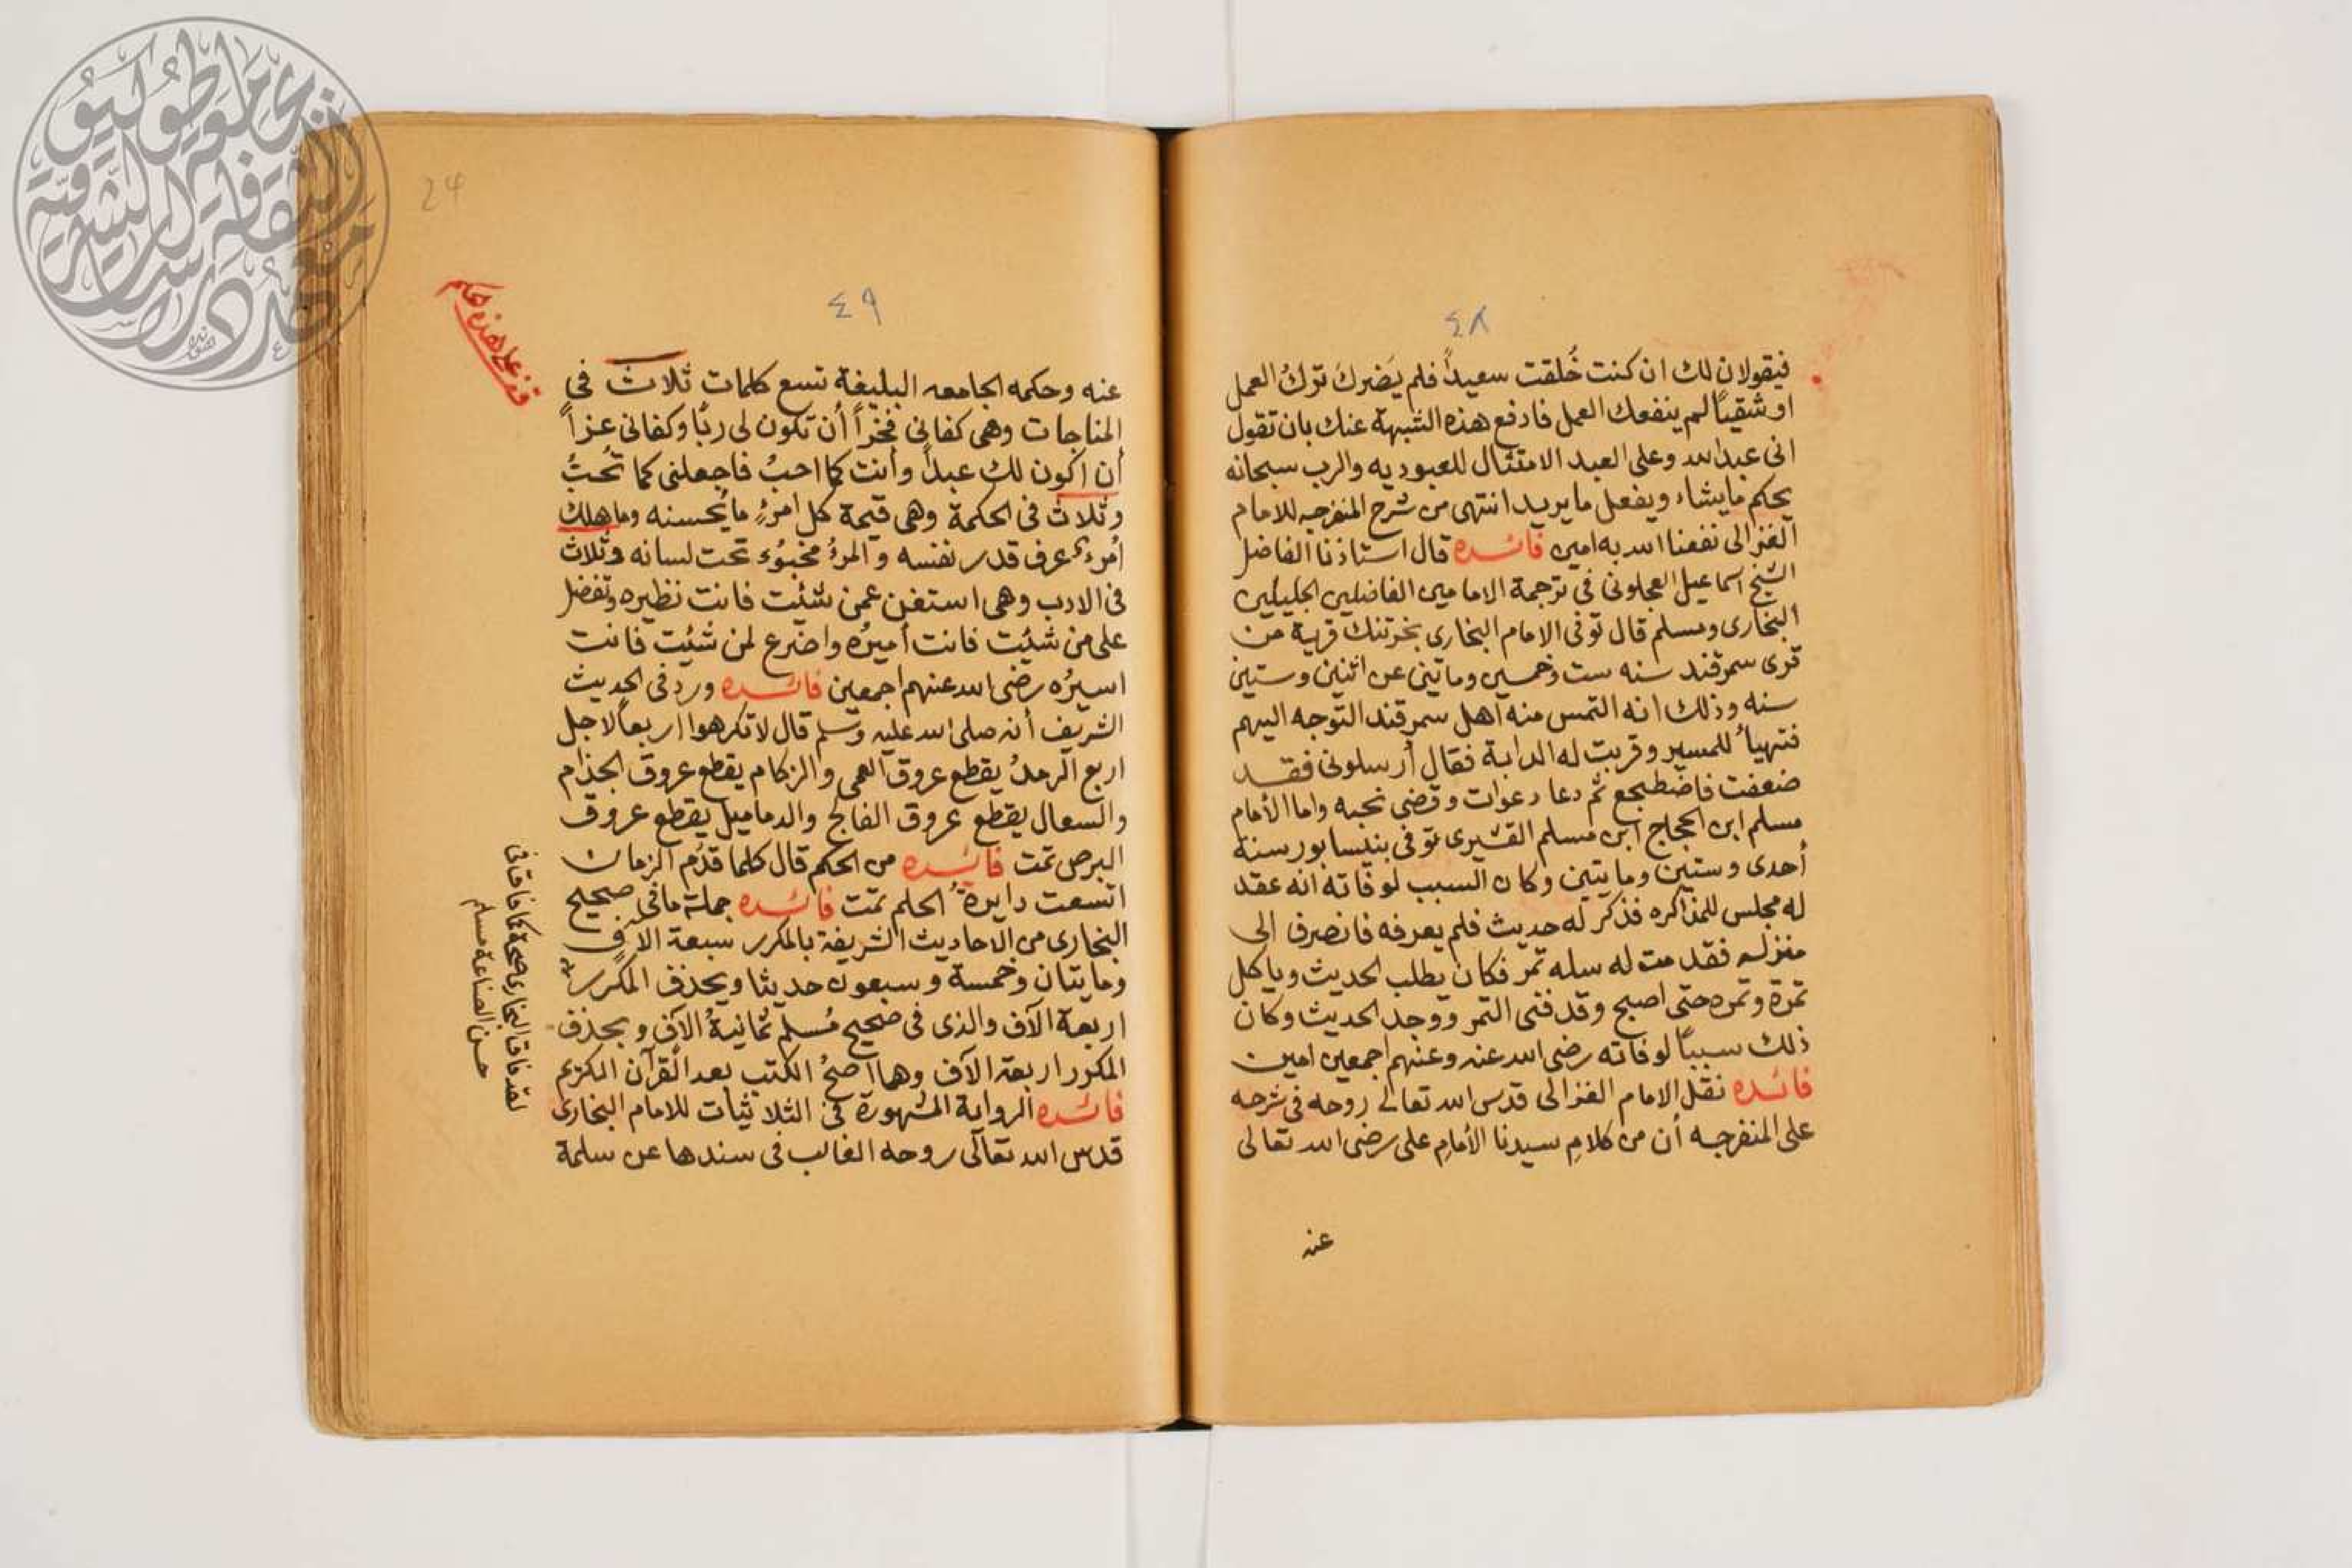 ٤٨
فيقولان لك ان كنت خُلقت سعيداً فلم يَضرك تركُ العمل
او شقياً لم ينفعك العمل فادفع هذه الشبهة عنك بان تقول
انى عبد الله وعلى العبد الامتثال للعبوديه والرب سبحانه
يحكم ما يشاء ويفعل ما يريد انتهى من شرح المنفرجه للامام
الغزالى نفعنا الله به امين فائده قال استاذنا الفاضل
الشيخ اسماعيل العجلونى فى ترجمة الامامين الفاضلين الجليلين
البخارى ومسلم قال توفى الامام البخارى بخرتنك قرية من
قرى سمرقند سنه ست وخمسين وماتين عن اثنين وستين
سنه وذلك انه التمس منه اهل سمرقند التوجه اليهم
فتهيأ للمسير وقربت له الدابة فقال أرسلونى فقد
ضعفت فاضطجع ثم دعا دعوات وقضى نحبه واما الأمام
مسلم ابن الحجاج ابن مسلم القشيرى توفى بنيسابور سنة
أحدى وستين ومايتين وكان السبب لوفاته انه عقد
له مجلس للمذاكره فذكر له حديث فلم يعرفه فانصرف الى
منزله فقدمت له سله تمر فكان يطلب الحديث وياكل
تمرة وتمره حتى اصبح وقد فنى التمر ووجد الحديث وكان
ذلك سبباً لوفاته رضى الله عنه وعنهم اجمعين امين
فائده نقل الامام الغزالى قدس الله تعالى روحه فى شرحه
على المنفرجه أن من كلامِ سيدنا الأمامِ على رضى الله تعالى
عنه
24
٤٩
عنه وحكمه الجامعه البليغة تسع كلمات ثلاث فى
المناجات وهى كفانى فخراً أن تكون لى ربًّا وكفانى عزاً
أن اكون لك عبداً وأنت كما احبُ فاجعلنى كما تُحبُ
وثلاث فى الحكمة وهى قيمة كل امرءٍ ما يُحسنه وما هلك
أمرء عرف قدر نفسه والمرءُ مخبوُء تحت لسانه وثلاث
فى الادب وهى استغن عمن شئت فانت نظيره وتفضل
على من شئت فانت أميرُه واضرع لمن شئت فانت
اسيرُه رضى الله عنهم اجمعين فائده ورد فى الحديث
الشريف أنه صلى الله عليه وسلم قال لا تكرهوا اربعاً لاجل
اربع الرمدُ يقطع عروق العمى والزكام يقطع عروق الجذام
والسعال يقطع عروق الفالج والدماميل يقطع عروق
البرص تمت فائده من الحكم قال كلما قدُم الزمان
اتسعت دايرةُ الحلم تمت فائده جملة ما فى صحيح
البخارى من الاحاديث الشريفة بالمكرر سبعة الاف
ومايتان وخمسة وسبعون حديثا وبحذف المكرر
اربعة الآف والذى فى صحيح مُسلم ثمانيةُ الآف وبحذف
المكرر اربعة الآف وهما اصحُ الكتب بعد القرآن الكريم
فائده الرواية المشهورة فى الثلاثيات للامام البخارى
قدس الله تعالى روحه الغالب فى سندها عن سلمة
لقد فاق البخارى صحة كما فاق فى
حسن الصناعة مسلم